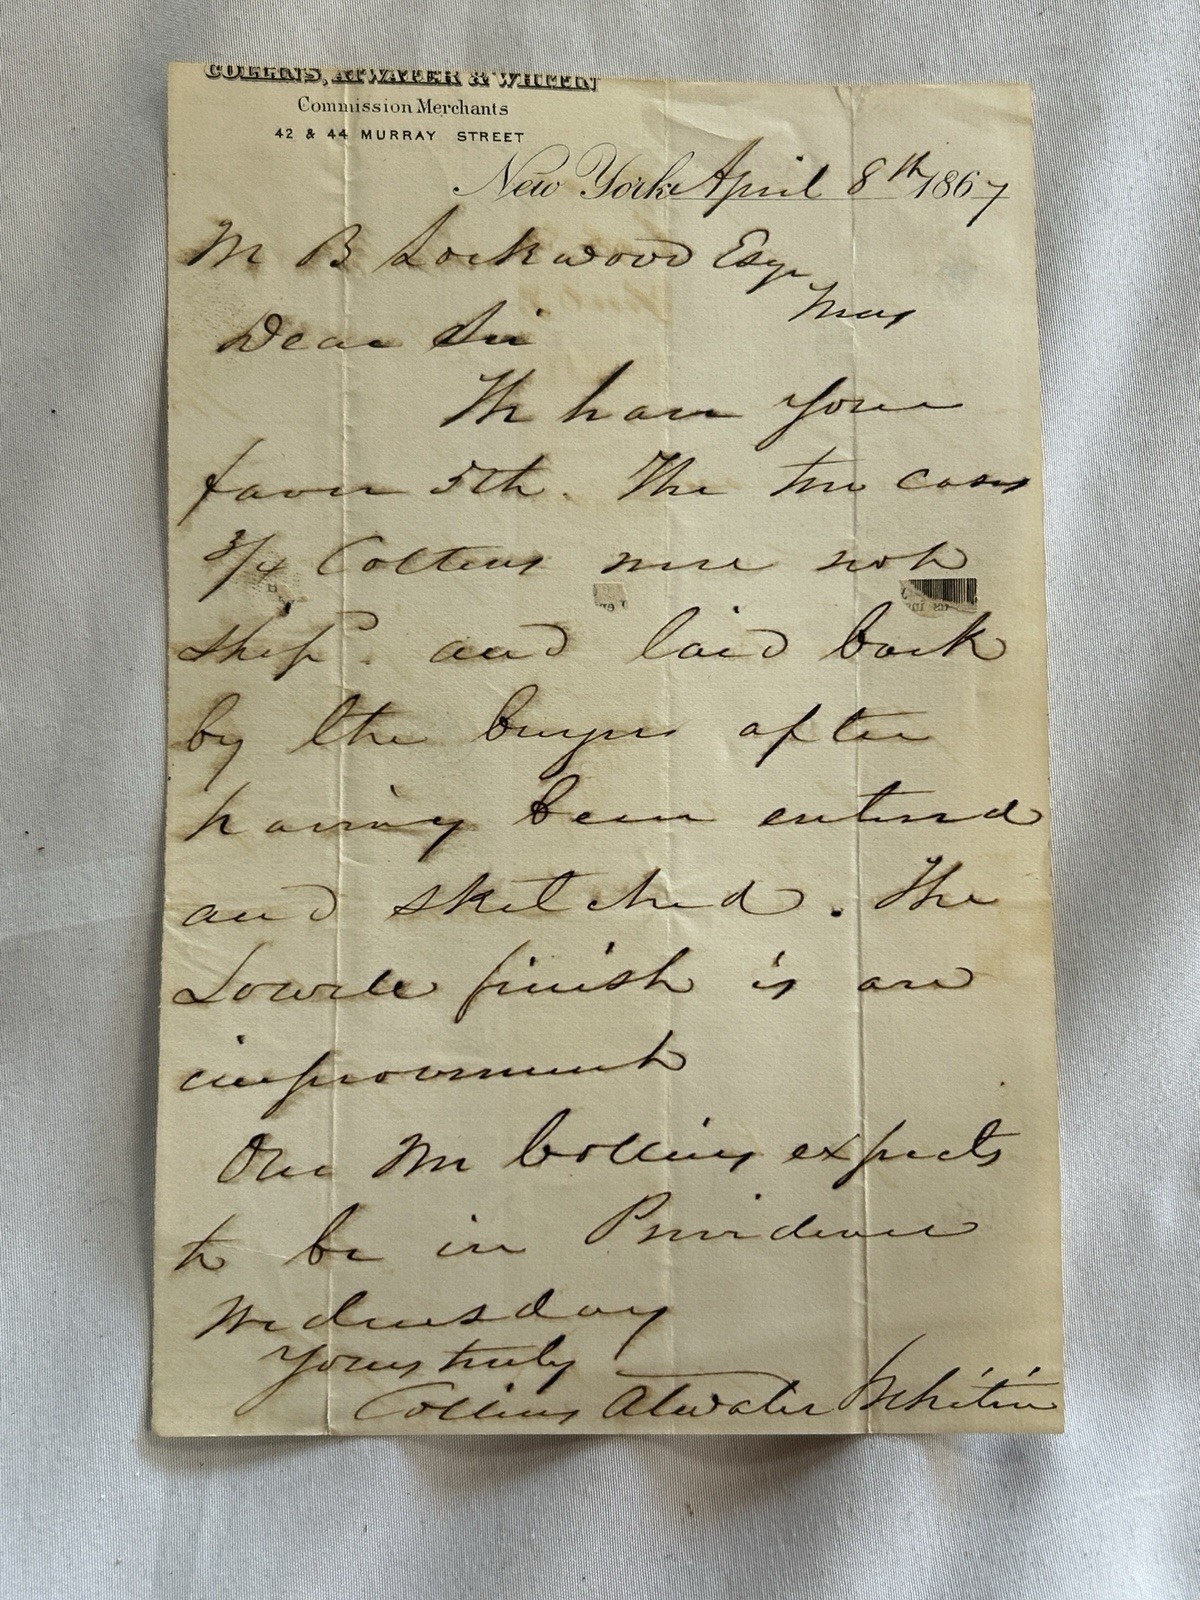 COLLINS, ATWATER & WHITIN
Commission Merchants
42 & 44 MURRAY STREET
New York April 8th 1867
M B Lockwood Esqr
Dear Sir
We have your
favor 5th. The two cases
3/4 Colteus were not
ship'd. and laid back
by the buyers after
having been entered
and sketched. The
Lowell finish is an
improvement
Our Mr Collins expects
to be in Providence
Wednesday
Yours truly
Collins Atwater & Whitin